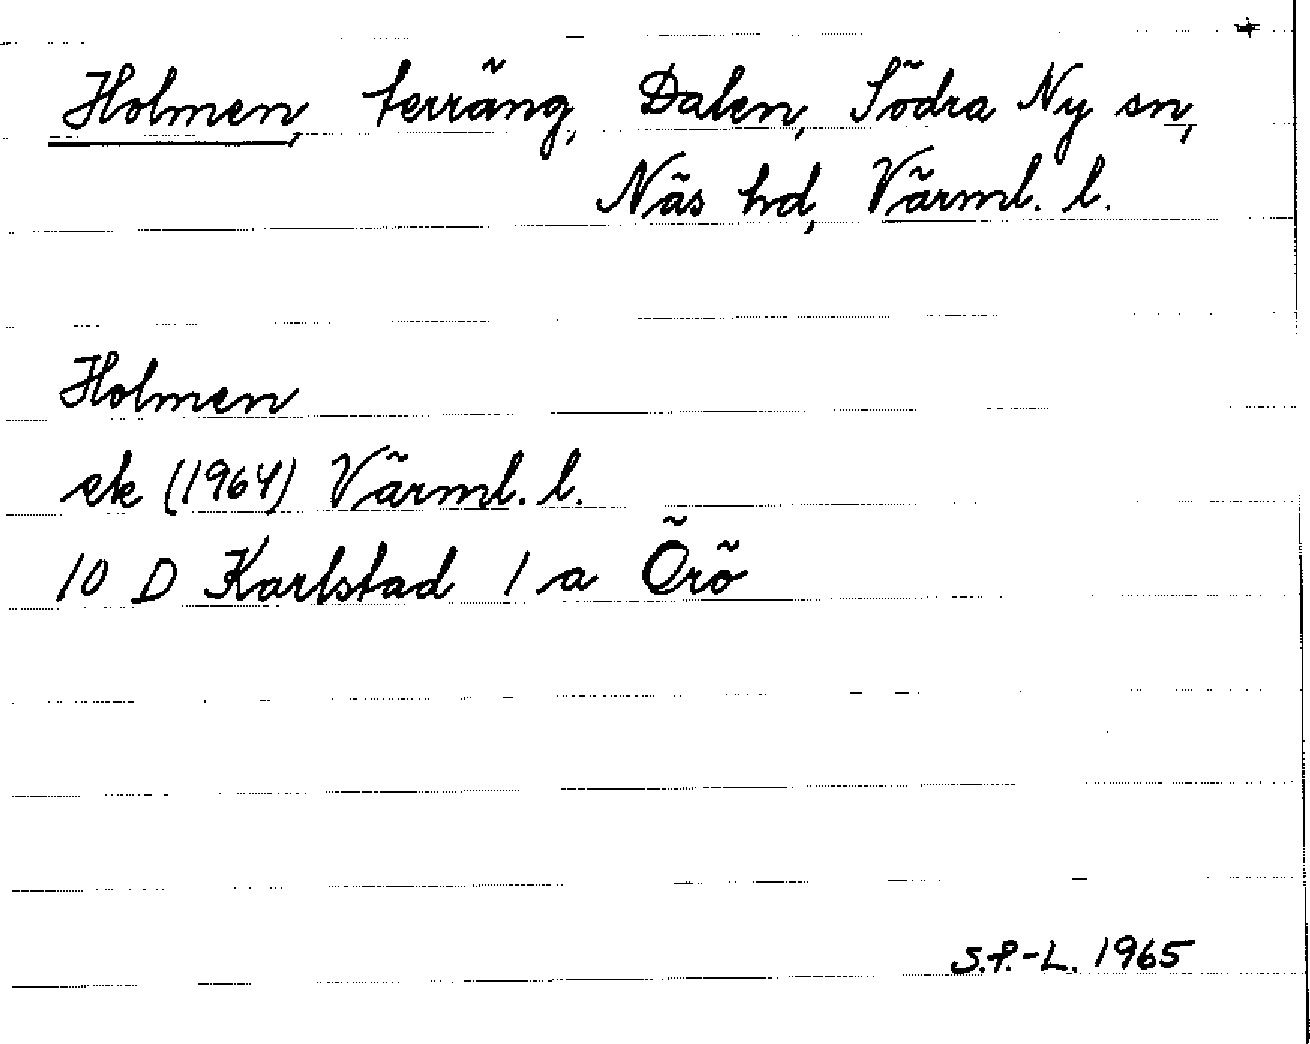 Holmen, terräng, Dalen, Södra Ny sn,
Näs hd, Värml. l.
Holmen
ek (1964) Värml. l.
10 D Karlstad 1 a Örö
S.P.-L. 1965